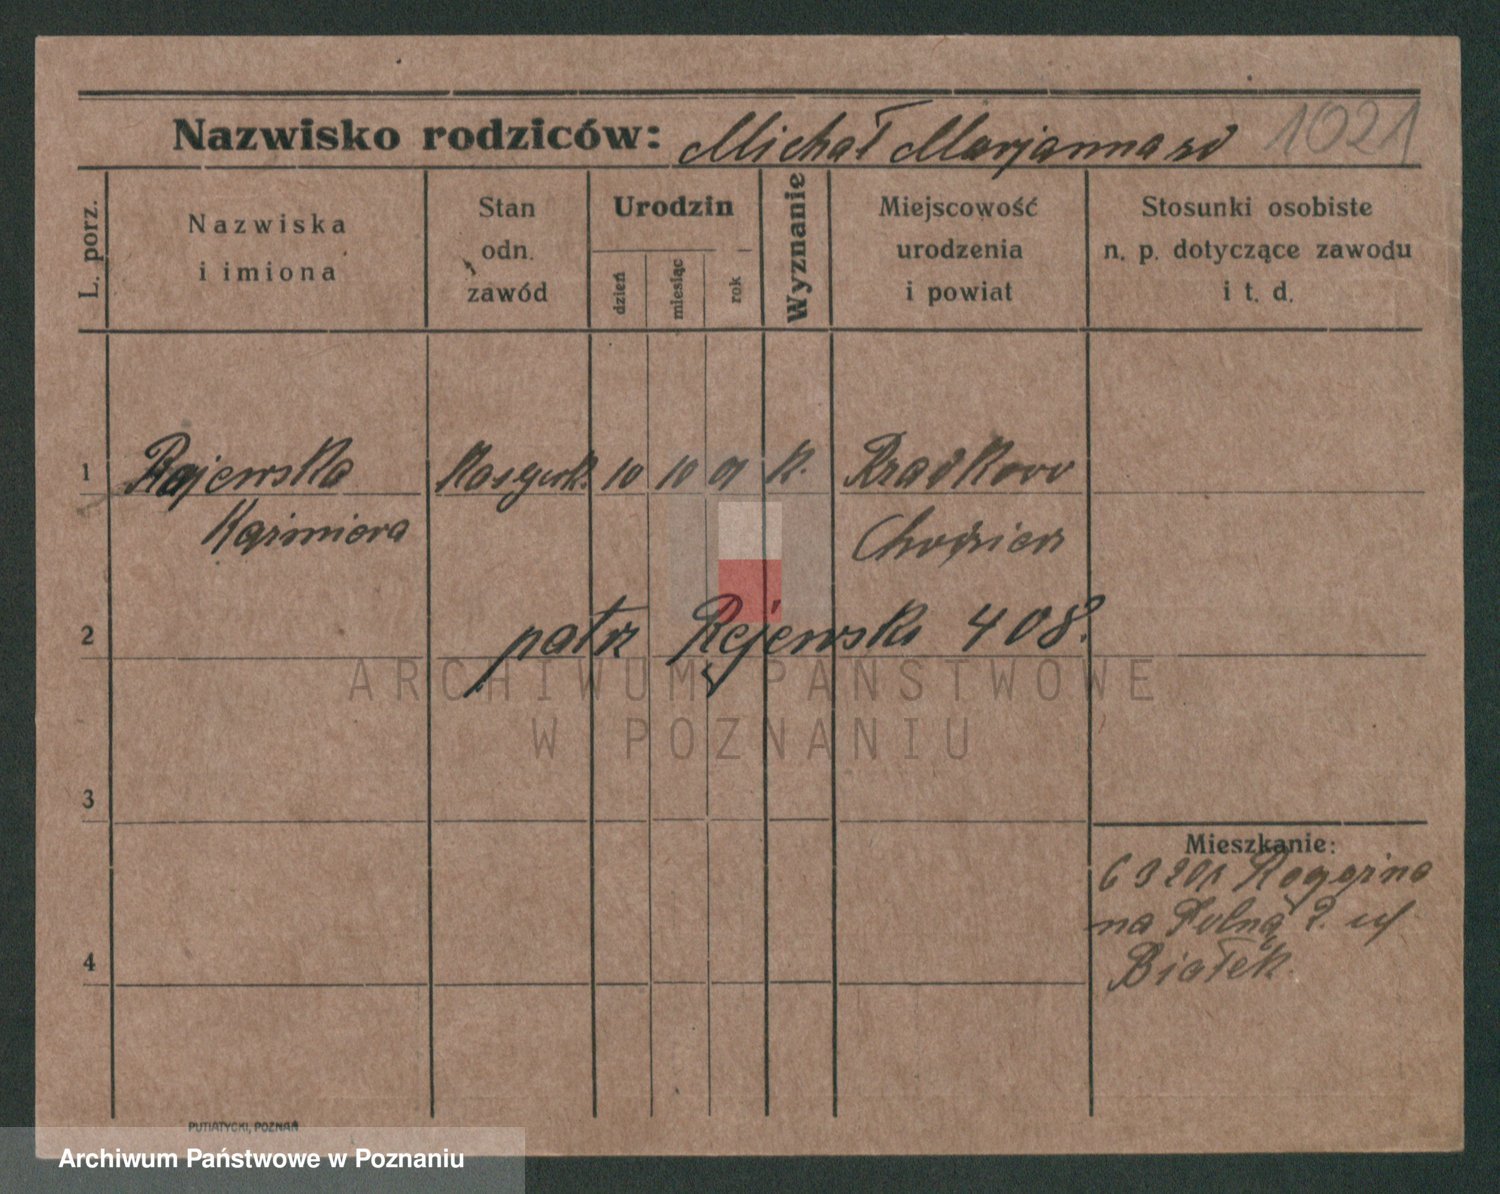 Nazwisko rodziców: Michał Marjanna 1021
L. porz.
Nazwiska
i imiona
Stan
odn.
zawód
Urodzin
dzień
miesiąc
rok
Wyznanie
Miejscowość
urodzenia
i powiat
Stosunki osobiste
n. p. dotyczące zawodu
i t. d.
1 Rajewska 10 10 01 k.
Kaźmiera Chodzież
2 patrz Rejewski 408.
ARCHIWUM PAŃSTWOWE
W POZNANIU
3
Mieszkanie:
6 9 201
na Polną 2. u/
Białek
4
PUTIATYCKI, POZNAŃ
Archiwum Państwowe w Poznaniu